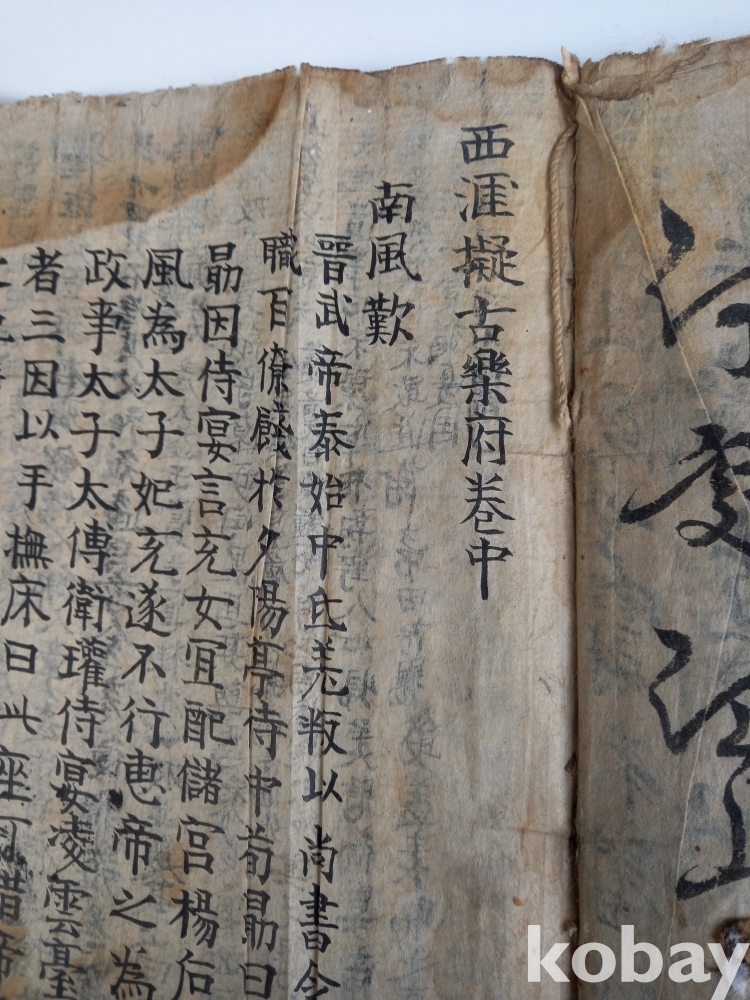 西涯擬古樂府卷中
南風歎
晉武帝泰始中氐羌叛以尚書令
職百僚餞於夕陽亭侍中荀勗曰
勗因侍宴言充女宜配儲宮楊后
風為太子妃充遂不行惠帝之為
政事太子太傅衛瓘侍宴凌雲臺
者三因以手撫床曰此座可惜帝
kobay